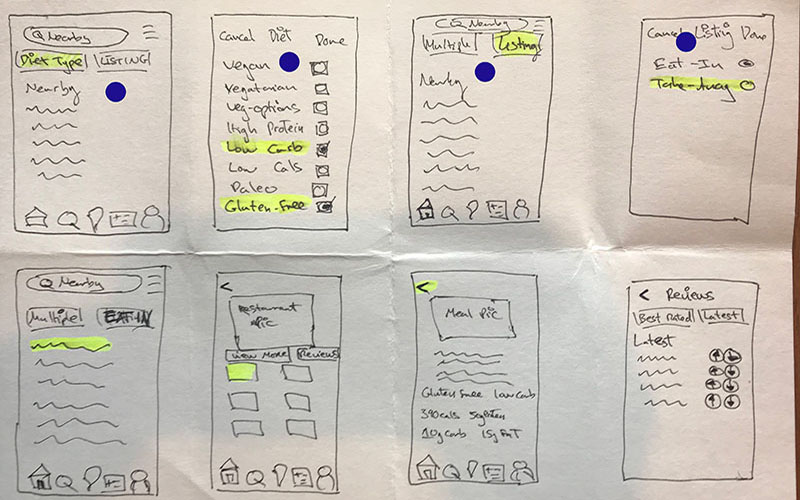 Nearby
Diet Type LISTING
Nearby
Cancel Diet Done
Vegan
Vegatarian
Veg-options
High Protein
Low Carb
Low Cals
Paleo
Gluten-Free
Nearby
Multiple Listing
Nearby
Cancel Listing Done
Eat-In
Take-Away
Nearby
Multiple EATIN
Restaurant
Pic
View More Reviews
Meal Pic
Gluten Free low Carb
390cals
10g Carb 15g FAT
< Reviews
Best Rated Latest
Latest